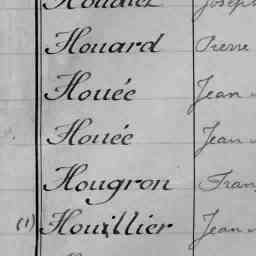 Houard Pierre
Houée Jean
Houée Jean
Hougron
(1) Houillier Jean